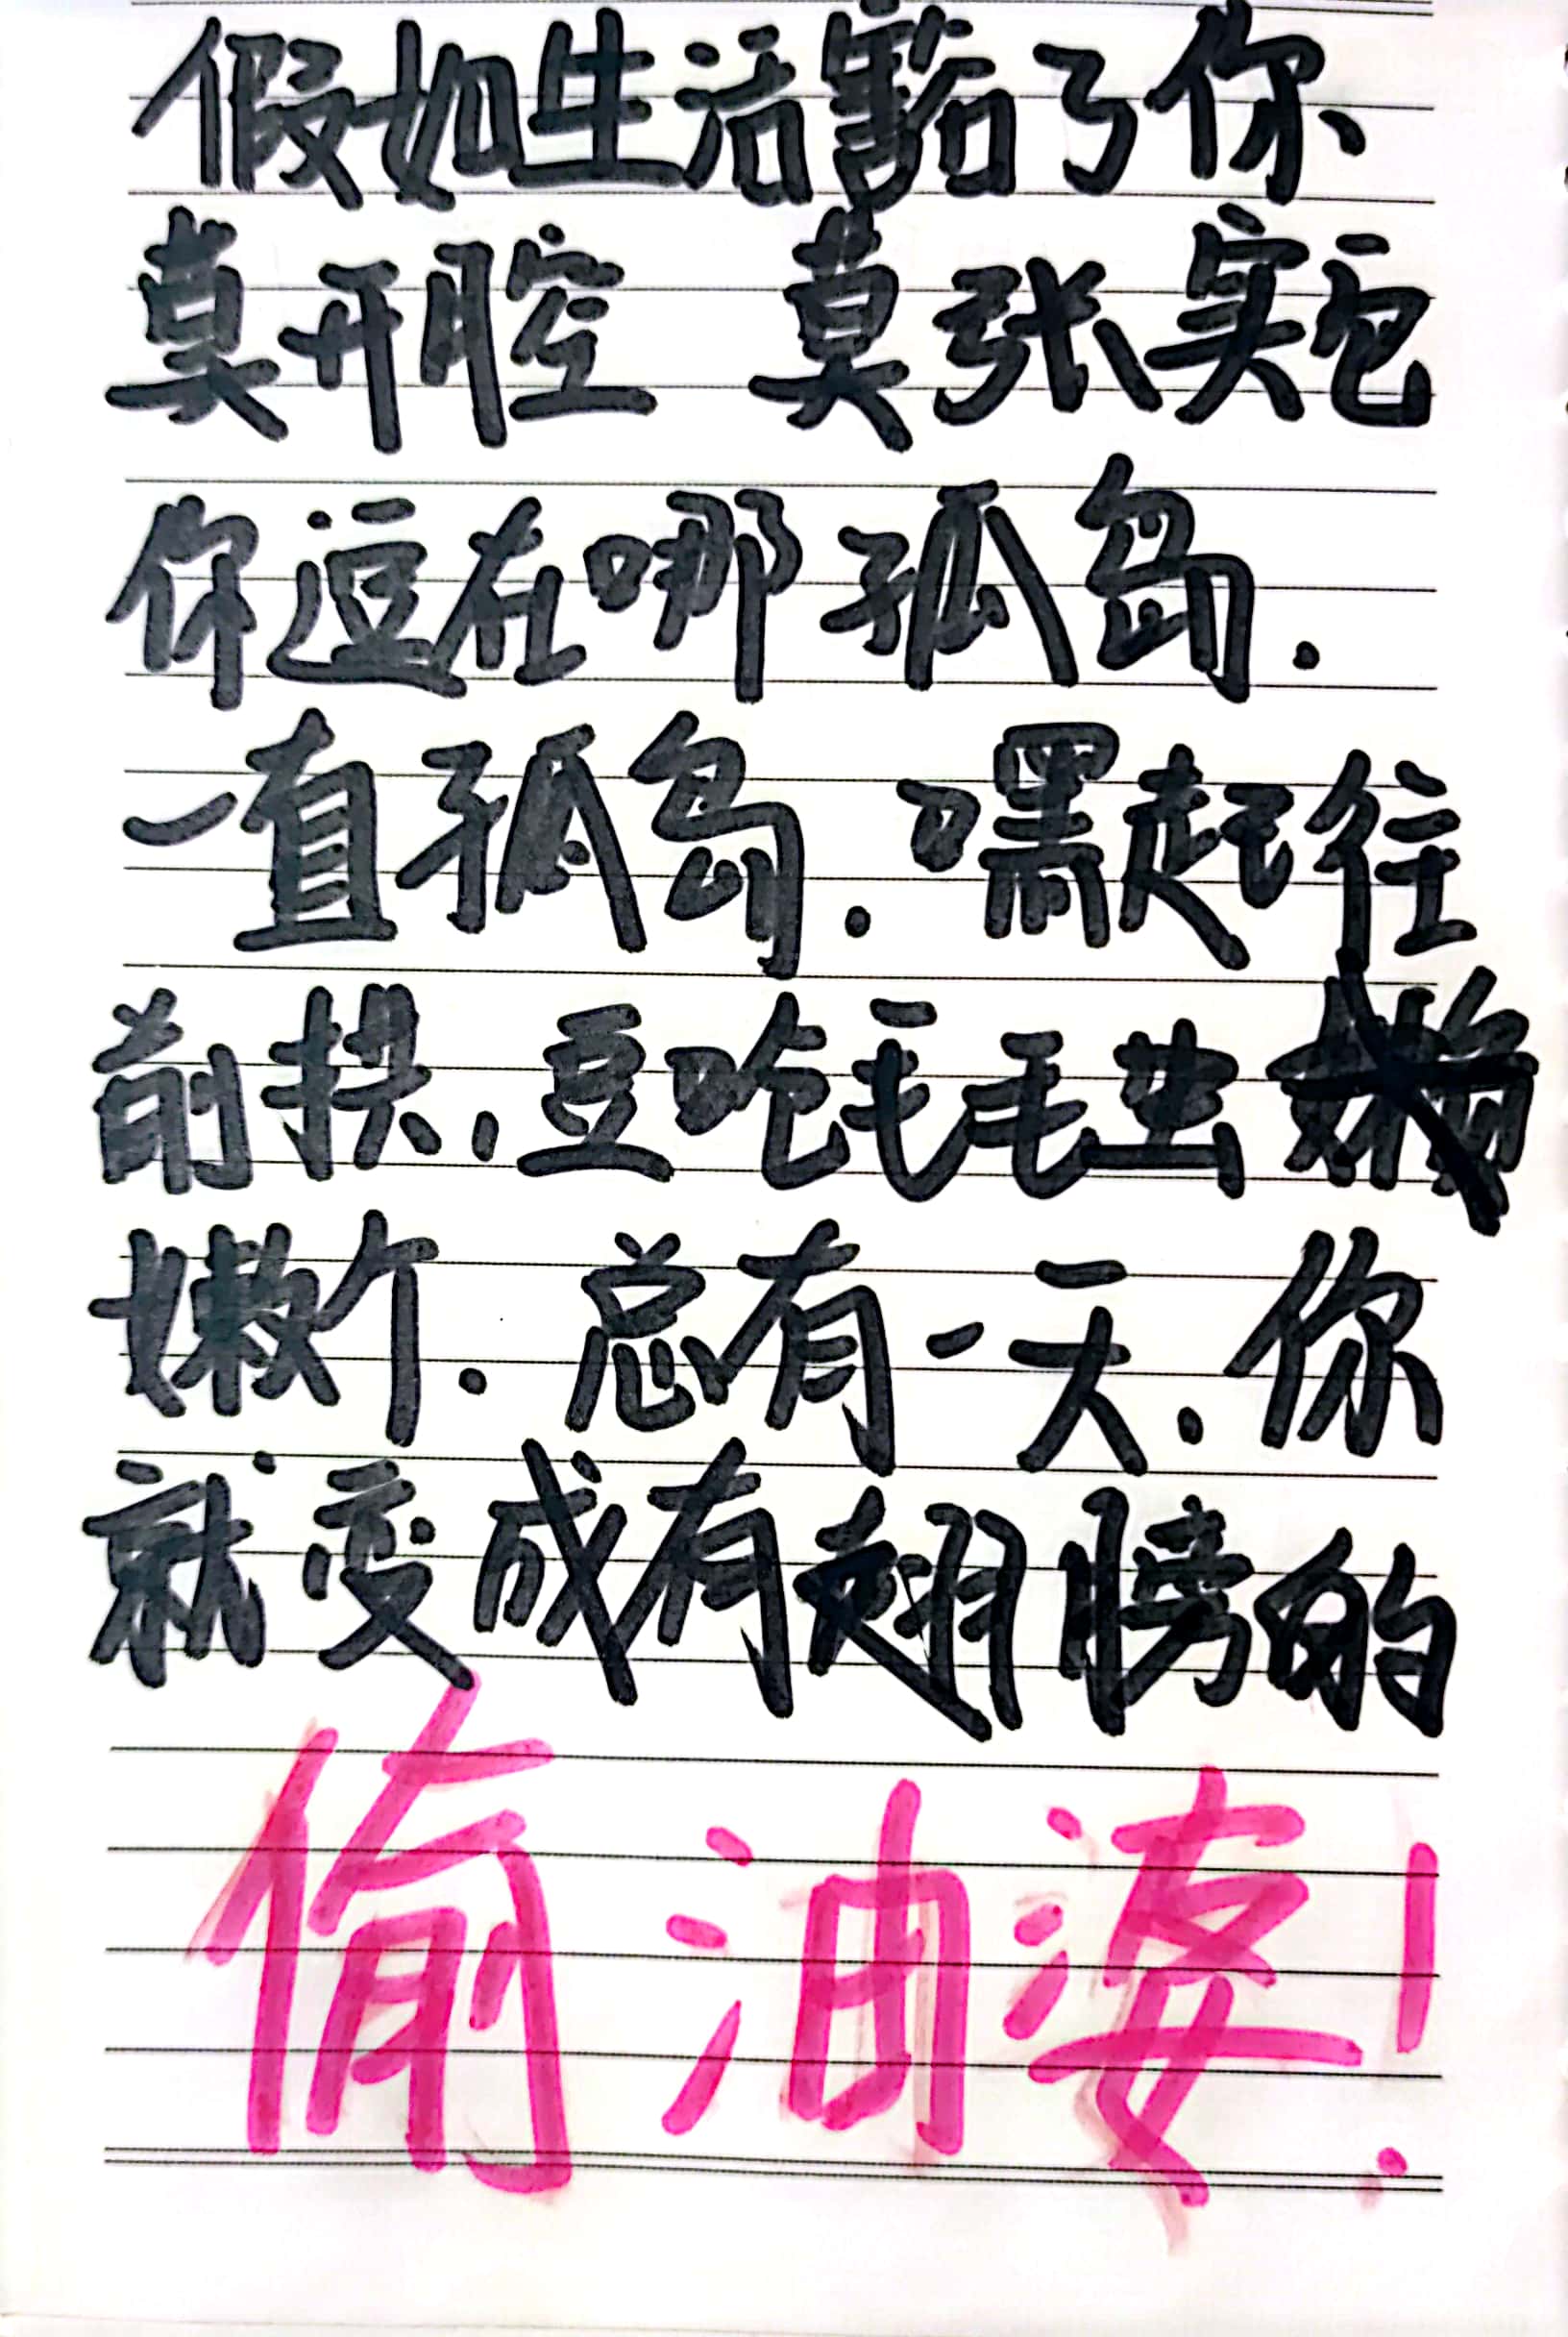 假如生活豁了你、
莫开腔 莫张实它
你逗在哪孤岛.
一直孤岛. 嘿起往
前拱, 豆吃毛毛虫
嫩个. 总有一天, 你
就变成有翅膀的
偷油婆!